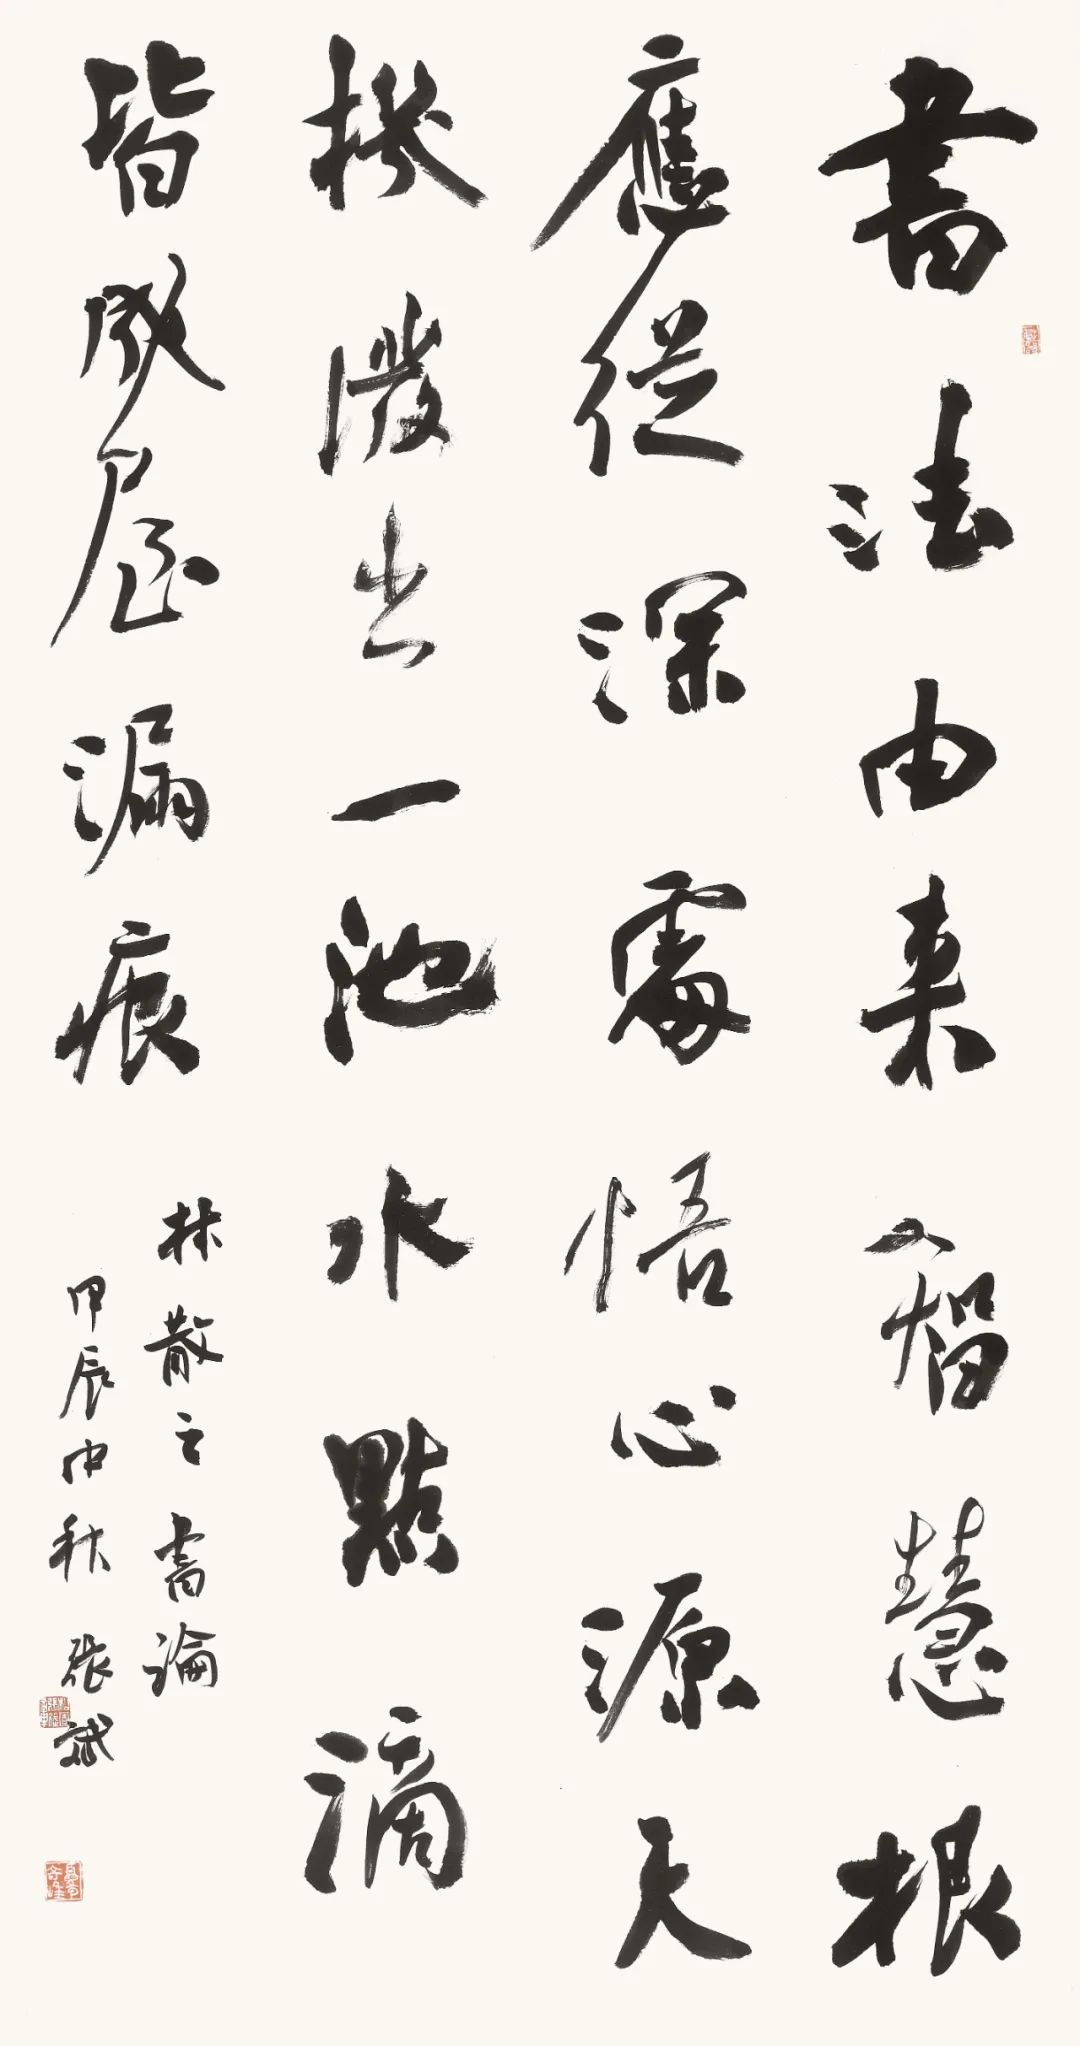 書法由來智慧根
應從深處悟心源天
機潑出一池水點滴
皆成屋漏痕
林散之書論
甲辰中秋張斌